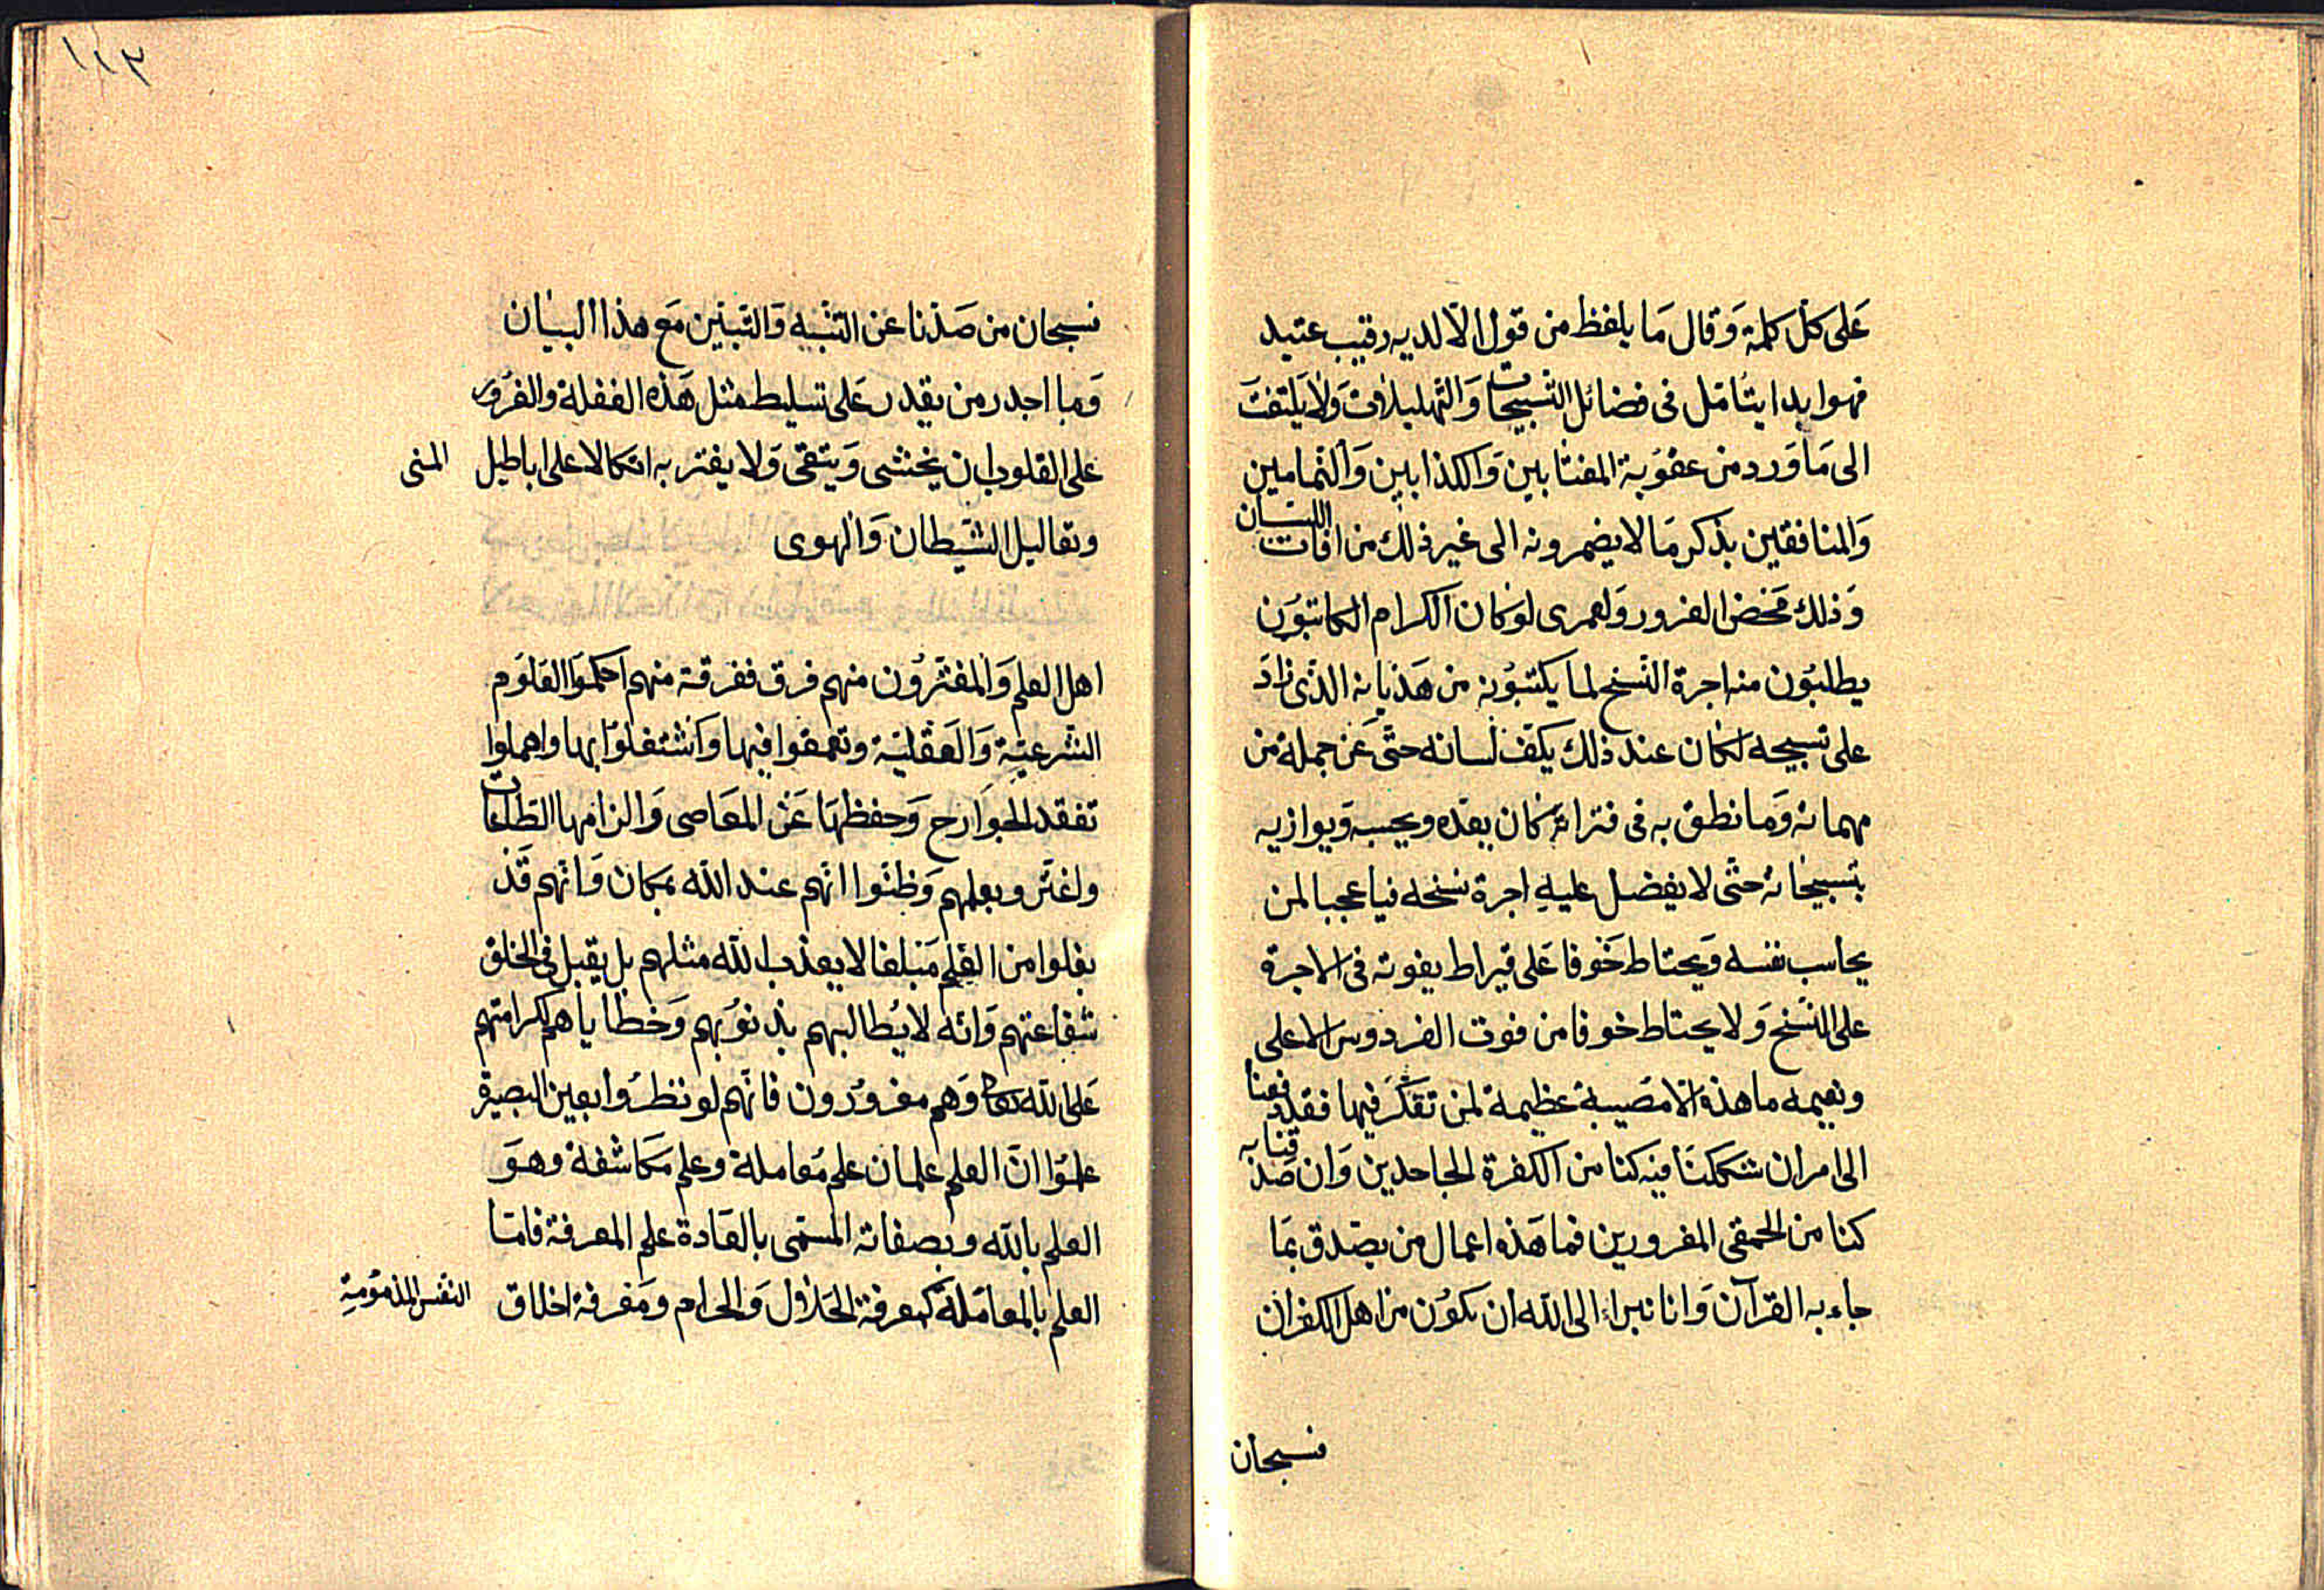 عَلى كلّ كلمة وَقال مَا يلفظ من قول الا لديه رقيب عتيد
فهو ابدا يتأمّل فى فضائل التّسبيحات وَالتّهليلات وَلا يَلتفت
الى مَا وَرد من عقوَبة المغتابين وَالكذابين وَالنّمامين
وَالمنافقين بذكر مَا لا يضمرونه الى غير ذلك من افات اللسان
وَذلك مَحض الغرور وَلعمرى لو كان الكرام الكاتبوُن
يطلبوُن منه اجرة النّسخ لما يكتبوُنه من هَذيانه الذى زادَ
على تسبيحه لكان عند ذلك يكف لسانه حتّى عَن جملة من
مهماته وَما نطق به فى فتراته كان يعدّه ويحسبه وَيوازيه
بتسبيحاته حتّى لا يفضل عليهِ اجرة نسخه فيا عجبا لمن
يحاسب نفسه وَيحتاط خَوفا عَلى قيراط يفوته فى الاجرة
على النّسخ وَلا يحتاط خوفا من فوت الفردوس الاعلى
ونعيمه ما هذه الا مصَيبة عظيمة لمن تفكّر فيها فقد دفعنا
الى امر ان شككنَا فيه كنا من الكفرة الجاحدين وَان صَدّقنا به
كنا من الحمقى المغرورين فما هَذه اعمال من يصَدق بمَا
جاء به القرآن وَانا نبراء الى الله ان نكوُن من اهل الكفران
فسبحان
١١٣
فسبحان من صَدّنا عن التنّبيه وَالتّبيين مَع هذا البيَان
وَما اجدر من يقدر عَلى تسليط مثل هَذه الغفلة والغرُور
على القلوب ان يخشى وَيتّقى وَلا يغتر به اتكالا على اباطيل المنى
وتعاليل الشّيطان وَالهوى
اهل العلم وَالمغترّوُن منهم فرق ففرقة منهم احكموَا العلوَم
الشّرعيّة وَالعَقليّة وتعمقوا فيها وَاشتغلوّا بها واهملوا
تفقد الجوَارح وَحفظهَا عَن المعَاصى وَالزامها الطّاعات
واغترّ وبعلمهم وَظنّوا انّهم عند الله بمكان وَانّهم قَد
بغلوا من العِلم مَبلغا لا يعذب الله مثلهم بل يقبل فى الخلق
شفاعتهم وَانّه لا يُطالبهم بذنوُبهم وَخطاياهم لكرامتهم
عَلى الله تعالى وَهم مغروُرون فانّهم لو نظرُوا بعين البصيرة
علموُا انّ العلم علمان علم مُعاملة وعلم مكَاشفة وهوَ
العلم بالله وبصفاته المسَمّى بالعَادة علم المعرفة فامّا
العلم بالمعامَلة كمعرفة الحَلال وَالحرام ومَعرفة اخلاق النّفس المذموُمةِ